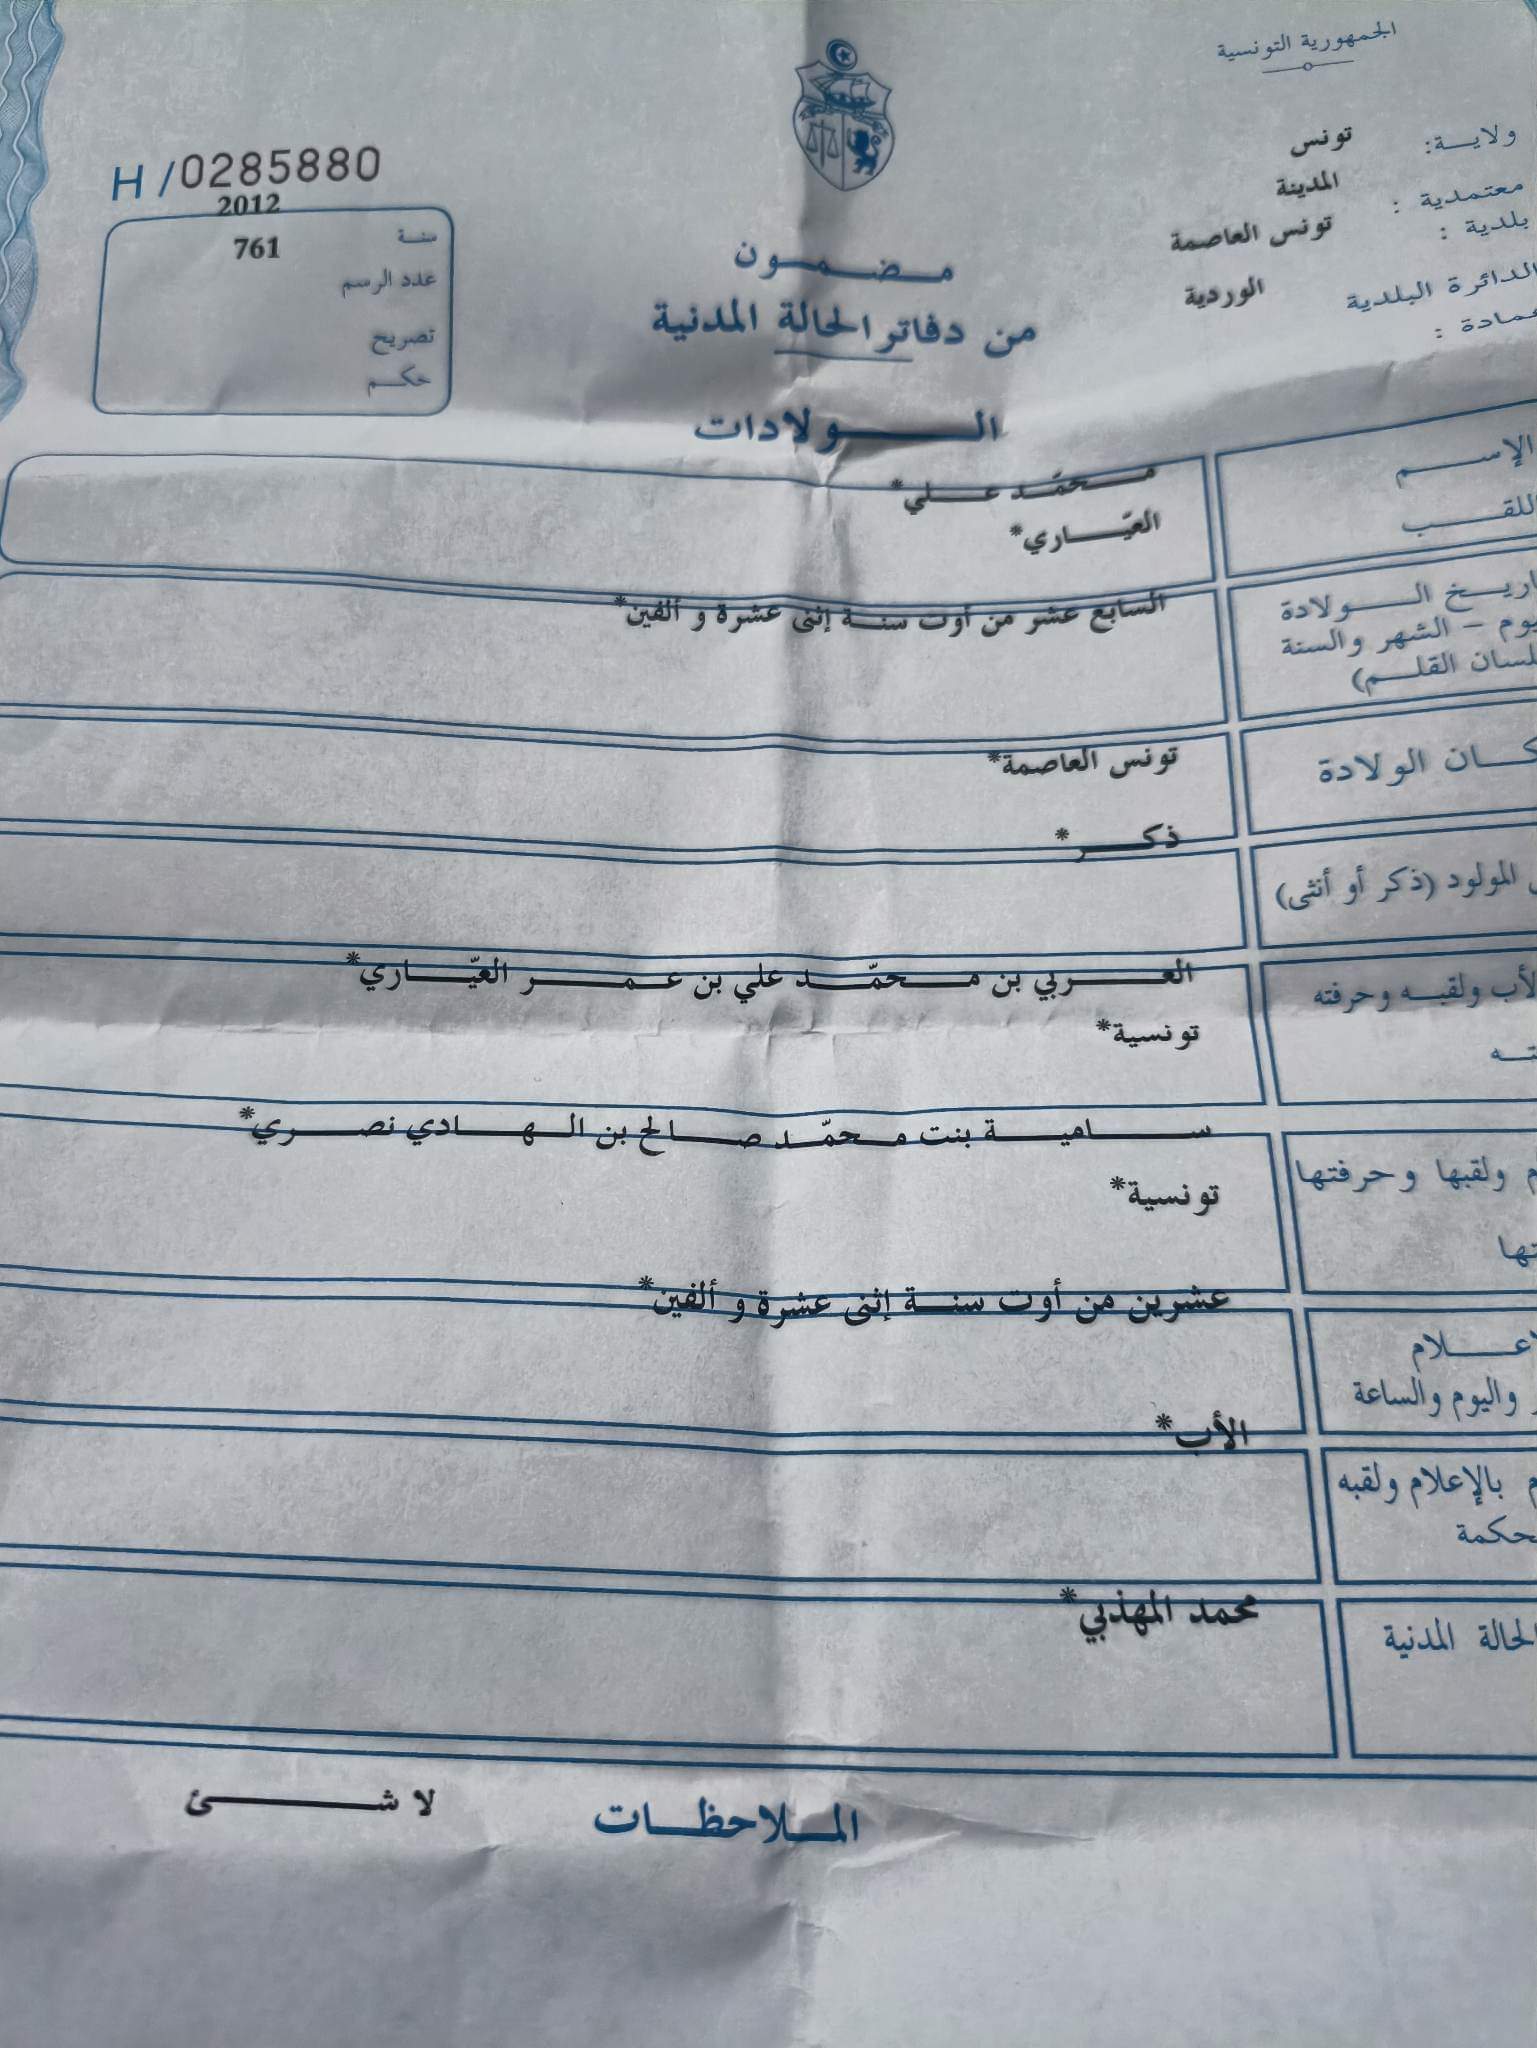 الجمهورية التونسية
ولاية: تونس
معتمدية : المدينة
بلدية : تونس العاصمة
الدائرة البلدية الوردية
عمادة :
H/0285880
سنة 2012
عدد الرسم 761
تصريح
حكم
مضمون
من دفاتر الحالة المدنية
الولادات
الإسم محمّد علي*
اللقب العيّاري*
تاريخ الولادة السابع عشر من أوت سنة إثنى عشرة و ألفين*
يوم – الشهر والسنة
لسان القلم)
كان الولادة تونس العاصمة*
ذكر*
المولود (ذكر أو أنثى)
العربي بن محمّد علي بن عمر العيّاري*
الأب ولقبه وحرفته
تونسية*
سامية بنت محمّد صالح بن الهادي نصري*
ولقبها وحرفتها
تونسية*
عشرين من أوت سنة إثنى عشرة و ألفين*
علام
واليوم والساعة
الأب*
بالإعلام ولقبه
حكمة
محمد المهذبي*
الحالة المدنية
الملاحظات لا شئ